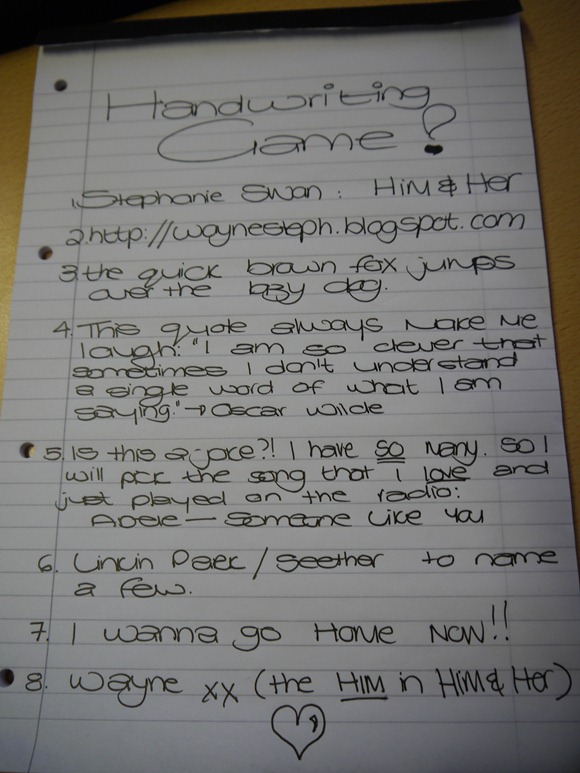 Handwriting
Game?
1. Stephanie Swan : HiM & Her
2. http://waynesteph.blogspot.com
3. the quick brown fox jumps
over the lazy dog.
4. This quote always make me
laugh: "I am so clever that
sometimes I don't understand
a single word of what I am
saying." → Oscar Wilde
5. Is this a joke?! I have so many. So I
will pick the song that I love and
just played on the radio:
Adele — Someone Like You
6. Linkin Park / Seether to name
a few.
7. I wanna go Home NOW!!
8. Wayne xx (the HIM in HiM & Her)